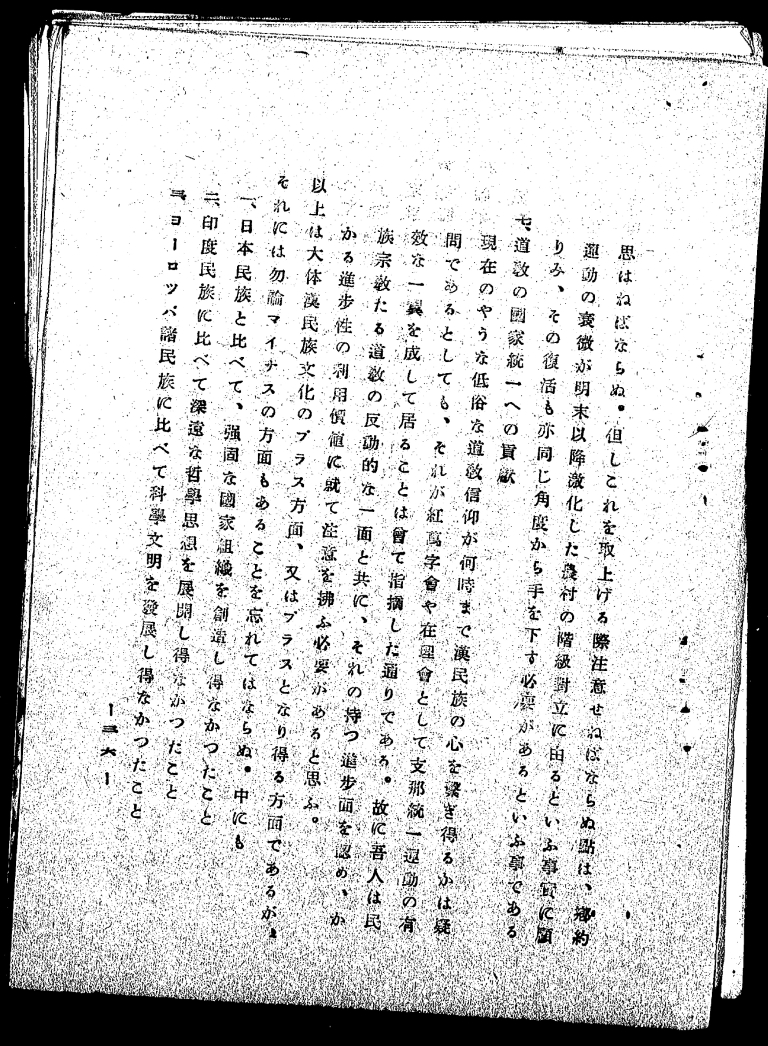 思はねばならぬ。但しこれを取上げる際注意せねばならぬ點は、鄕約
運動の衰微が明末以降激化した農村の階級對立に由るといふ事實に顧
りみ、その復活も亦同じ角度から手を下す必要があるといふ事である
七、道敎の國家統一への貢獻
現在のやうな低俗な道敎信仰が何時まで漢民族の心を繫ぎ得るかは疑
問であるとしても、それが紅萬字會や在理會として支那統一運動の有
效な一翼を成して居ることは曾て指摘した通りである。故に吾人は民
族宗敎たる道敎の反動的な一面と共に、それの持つ進步面を認め、か
かる進步性の利用價値に就て注意を拂ふ必要があると思ふ。
以上は大体漢民族文化のプラス方面、又はプラスとなり得る方面であるが、
それには勿論マイナスの方面もあることを忘れてはならぬ。中にも
一、日本民族と比べて、强固な國家組織を創造し得なかつたこと
二、印度民族に比べて深遠な哲學思想を展開し得なかつたこと
三、ヨーロツパ諸民族に比べて科學文明を發展し得なかつたこと
—三六—